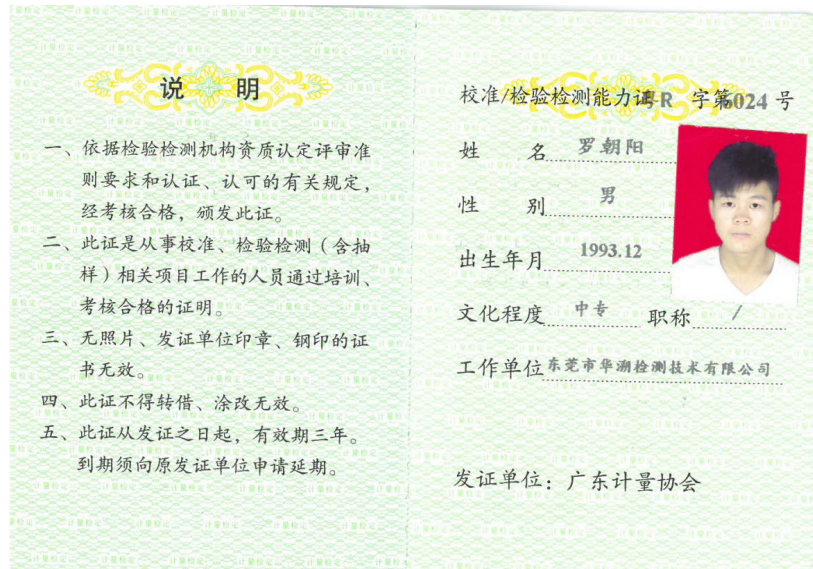 说 明
一、依据检验检测机构资质认定评审准
则要求和认证、认可的有关规定，
经考核合格，颁发此证。
二、此证是从事校准、检验检测（含抽
样）相关项目工作的人员通过培训、
考核合格的证明。
三、无照片、发证单位印章、钢印的证
书无效。
四、此证不得转借、涂改无效。
五、此证从发证之日起，有效期三年。
到期须向原发证单位申请延期。
校准/检验检测能力证粤R 字第6024 号
姓 名 罗朝阳
性 别 男
出生年月 1993.12
文化程度 中专 职称 /
工作单位 东莞市华溯检测技术有限公司
发证单位：广东计量协会